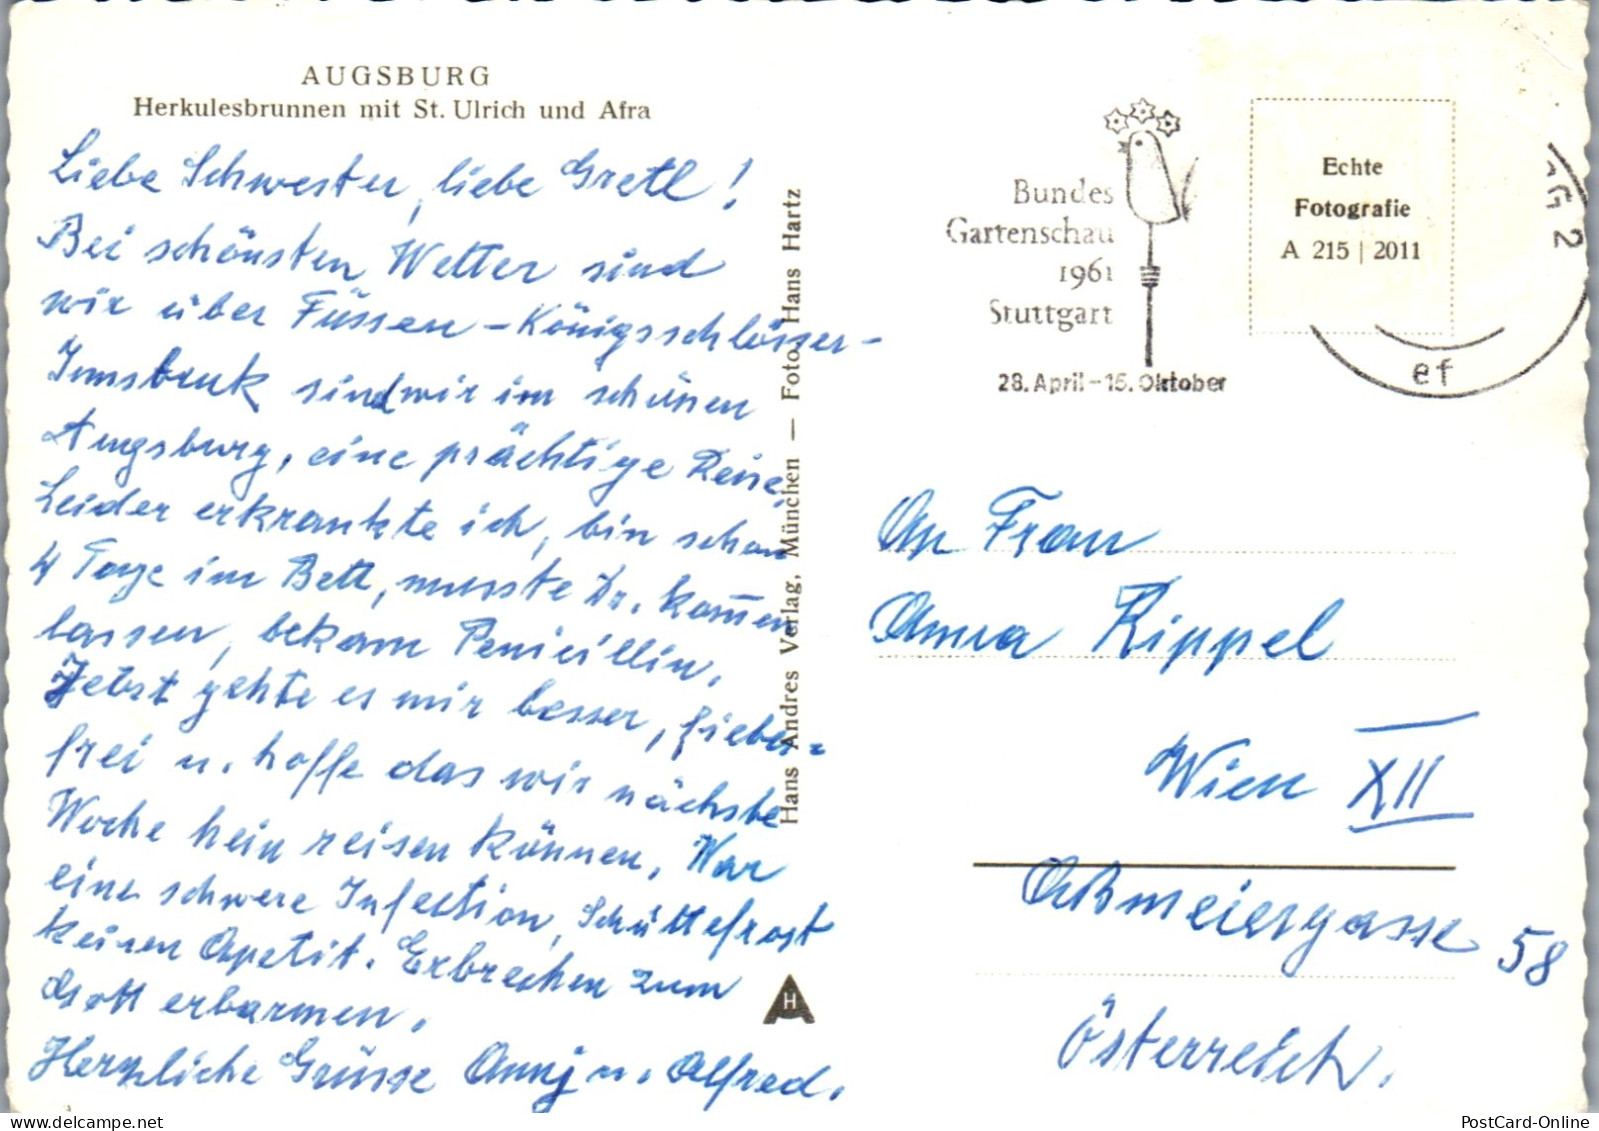 AUGSBURG
Herkulesbrunnen mit St. Ulrich und Afra
Liebe Schwester, liebe Gretl!
Bei schönsten Wetter sind
wir über Füssen - Königsschlösser -
Innsbruk sind wir im schönen
Augsburg, eine prächtige Reise,
Leider erkrankte ich, bin schon
4 Tage im Bett, musste Dr. kom̄en
lassen, bekam Penicillin.
Jetzt gehte es mir besser, fieber=
frei u. hoffe das wir nächste
Woche heim reisen können, War
eine schwere Infection, Schüttefrost
keinen Apetit. Erbrechen zum
Gott erbarmen.
Herzliche Grüsse Annj u. Alfred.
Hans Andres Verlag, München — Foto Hans Hartz
HA
Bundes
Gartenschau
1961
Stuttgart
28. April - 15. Oktober
Echte
Fotografie
A 215 | 2011
G 2
ef
An Frau
Anna Rippel
Wien XII
Aßmeiergasse 58
Österreich.
PostCard-Online